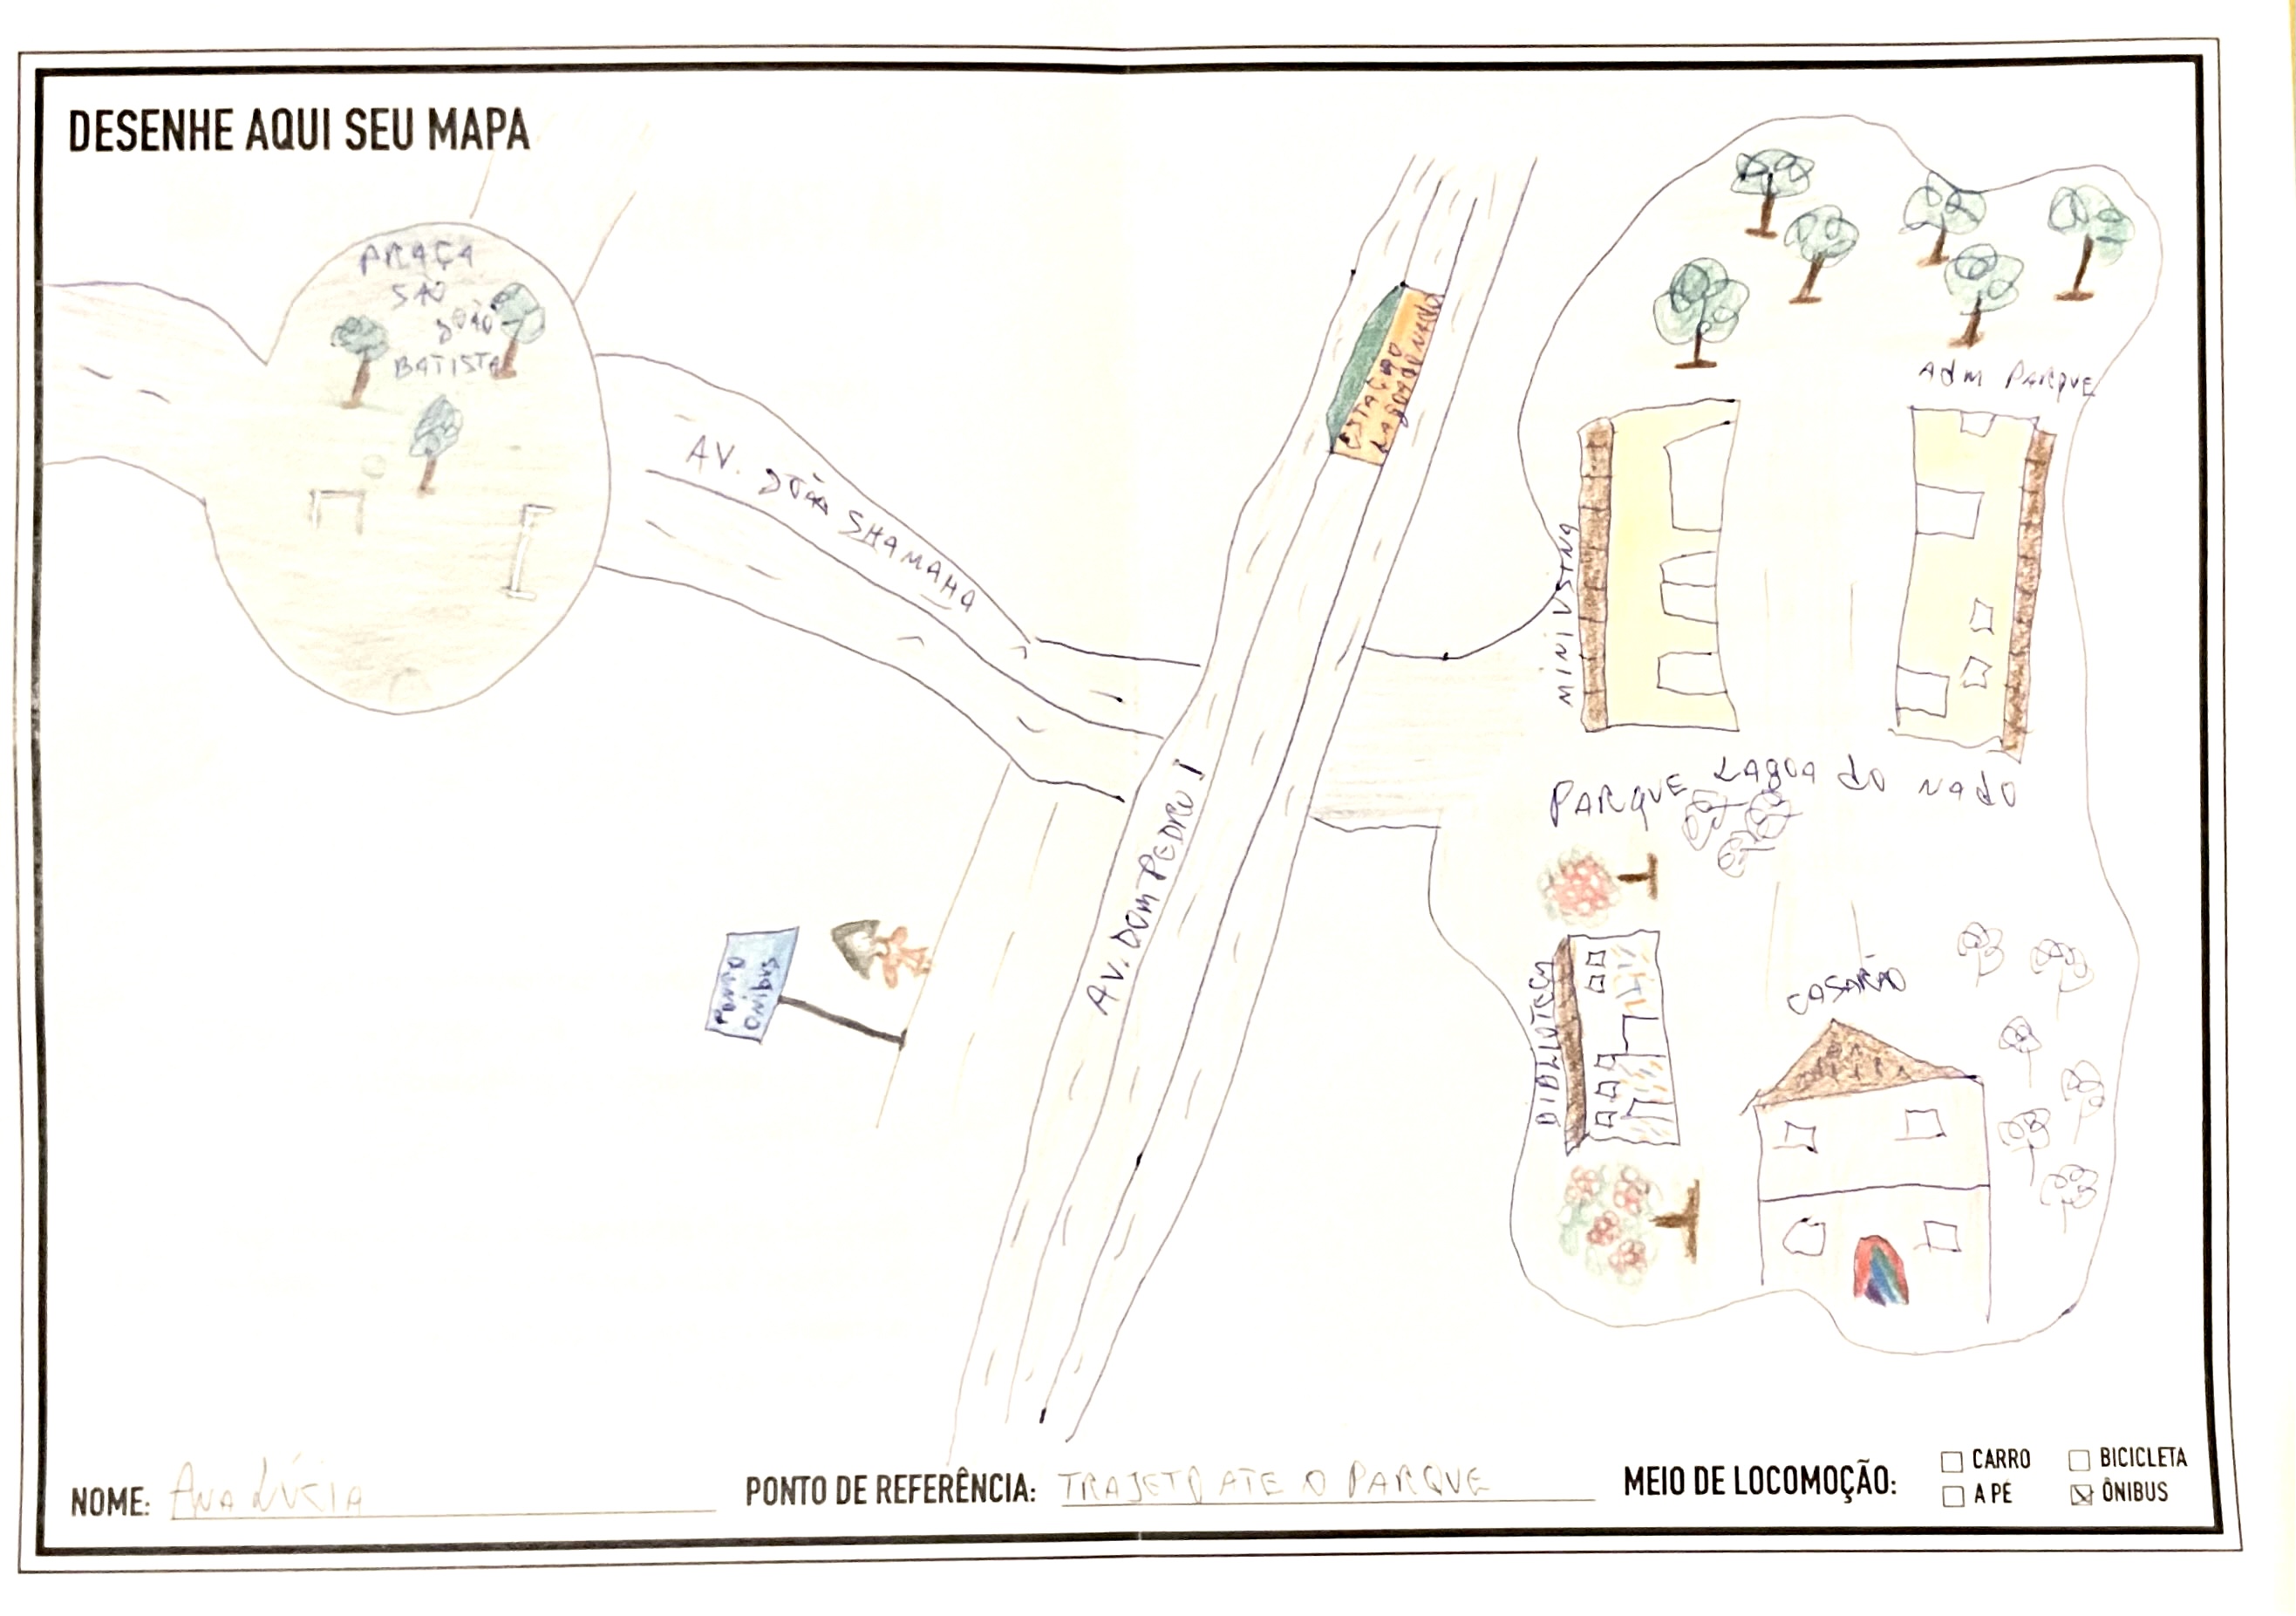 DESENHE AQUI SEU MAPA
PRAÇA
SÃO
JOÃO
BATISTA
AV. JOÃO SHAMAHA
ESTAÇÃO
LAGOA DO NADO
AV. DOM PEDRO I
ADM PARQUE
MINI USINA
PARQUE LAGOA DO NADO
BIBLIOTECA
CASARÃO
PLANO
SABINO
NOME: ANA LÚCIA
PONTO DE REFERÊNCIA: TRAJETO ATE O PARQUE
MEIO DE LOCOMOÇÃO:
CARRO
BICICLETA
A PÉ
ÔNIBUS